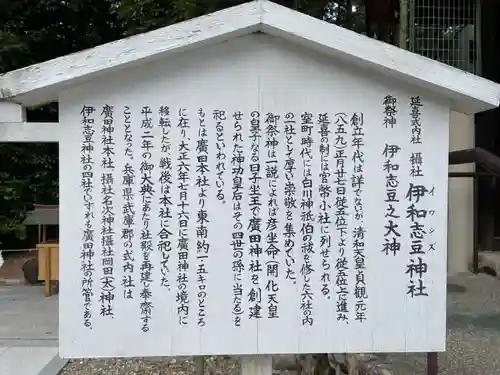 延喜式内社 摂社 伊和志豆神社
イワシズ
御祭神 伊和志豆之大神
創立年代は詳でないが、清和天皇貞観元年
(八五九)正月廿七日従五位下より従五位上に進み、
延喜の制には官幣小社に列せられる。
室町時代には白川神祇伯の祓を修した六社の内
の一社として厚い崇敬を集めていた。
御祭神は一説によれば彦坐命(開化天皇
の皇子なる日子坐王で廣田神社を創建
せられた神功皇后はその四世の孫に当たる)を
祀るといわれている。
もとは廣田本社より東南約一・五キロのところ
に在り、大正六年七月十六日に廣田神社の境内に
移転したが、戦後は本社に合祀していた。
平成二年の御大典にあたり社殿を再建し奉斎する
こととなった。兵庫県武庫郡の式内社は
廣田神社・摂社名次神社・摂社岡田(太)神社、
伊和志豆神社の四社でいずれも廣田神社の所管である。